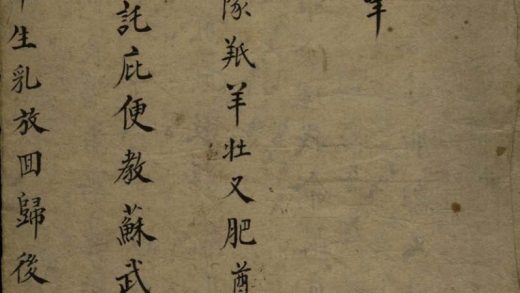 隊羝羊壯又肥
託庇便教蘇武
生乳放囬歸後